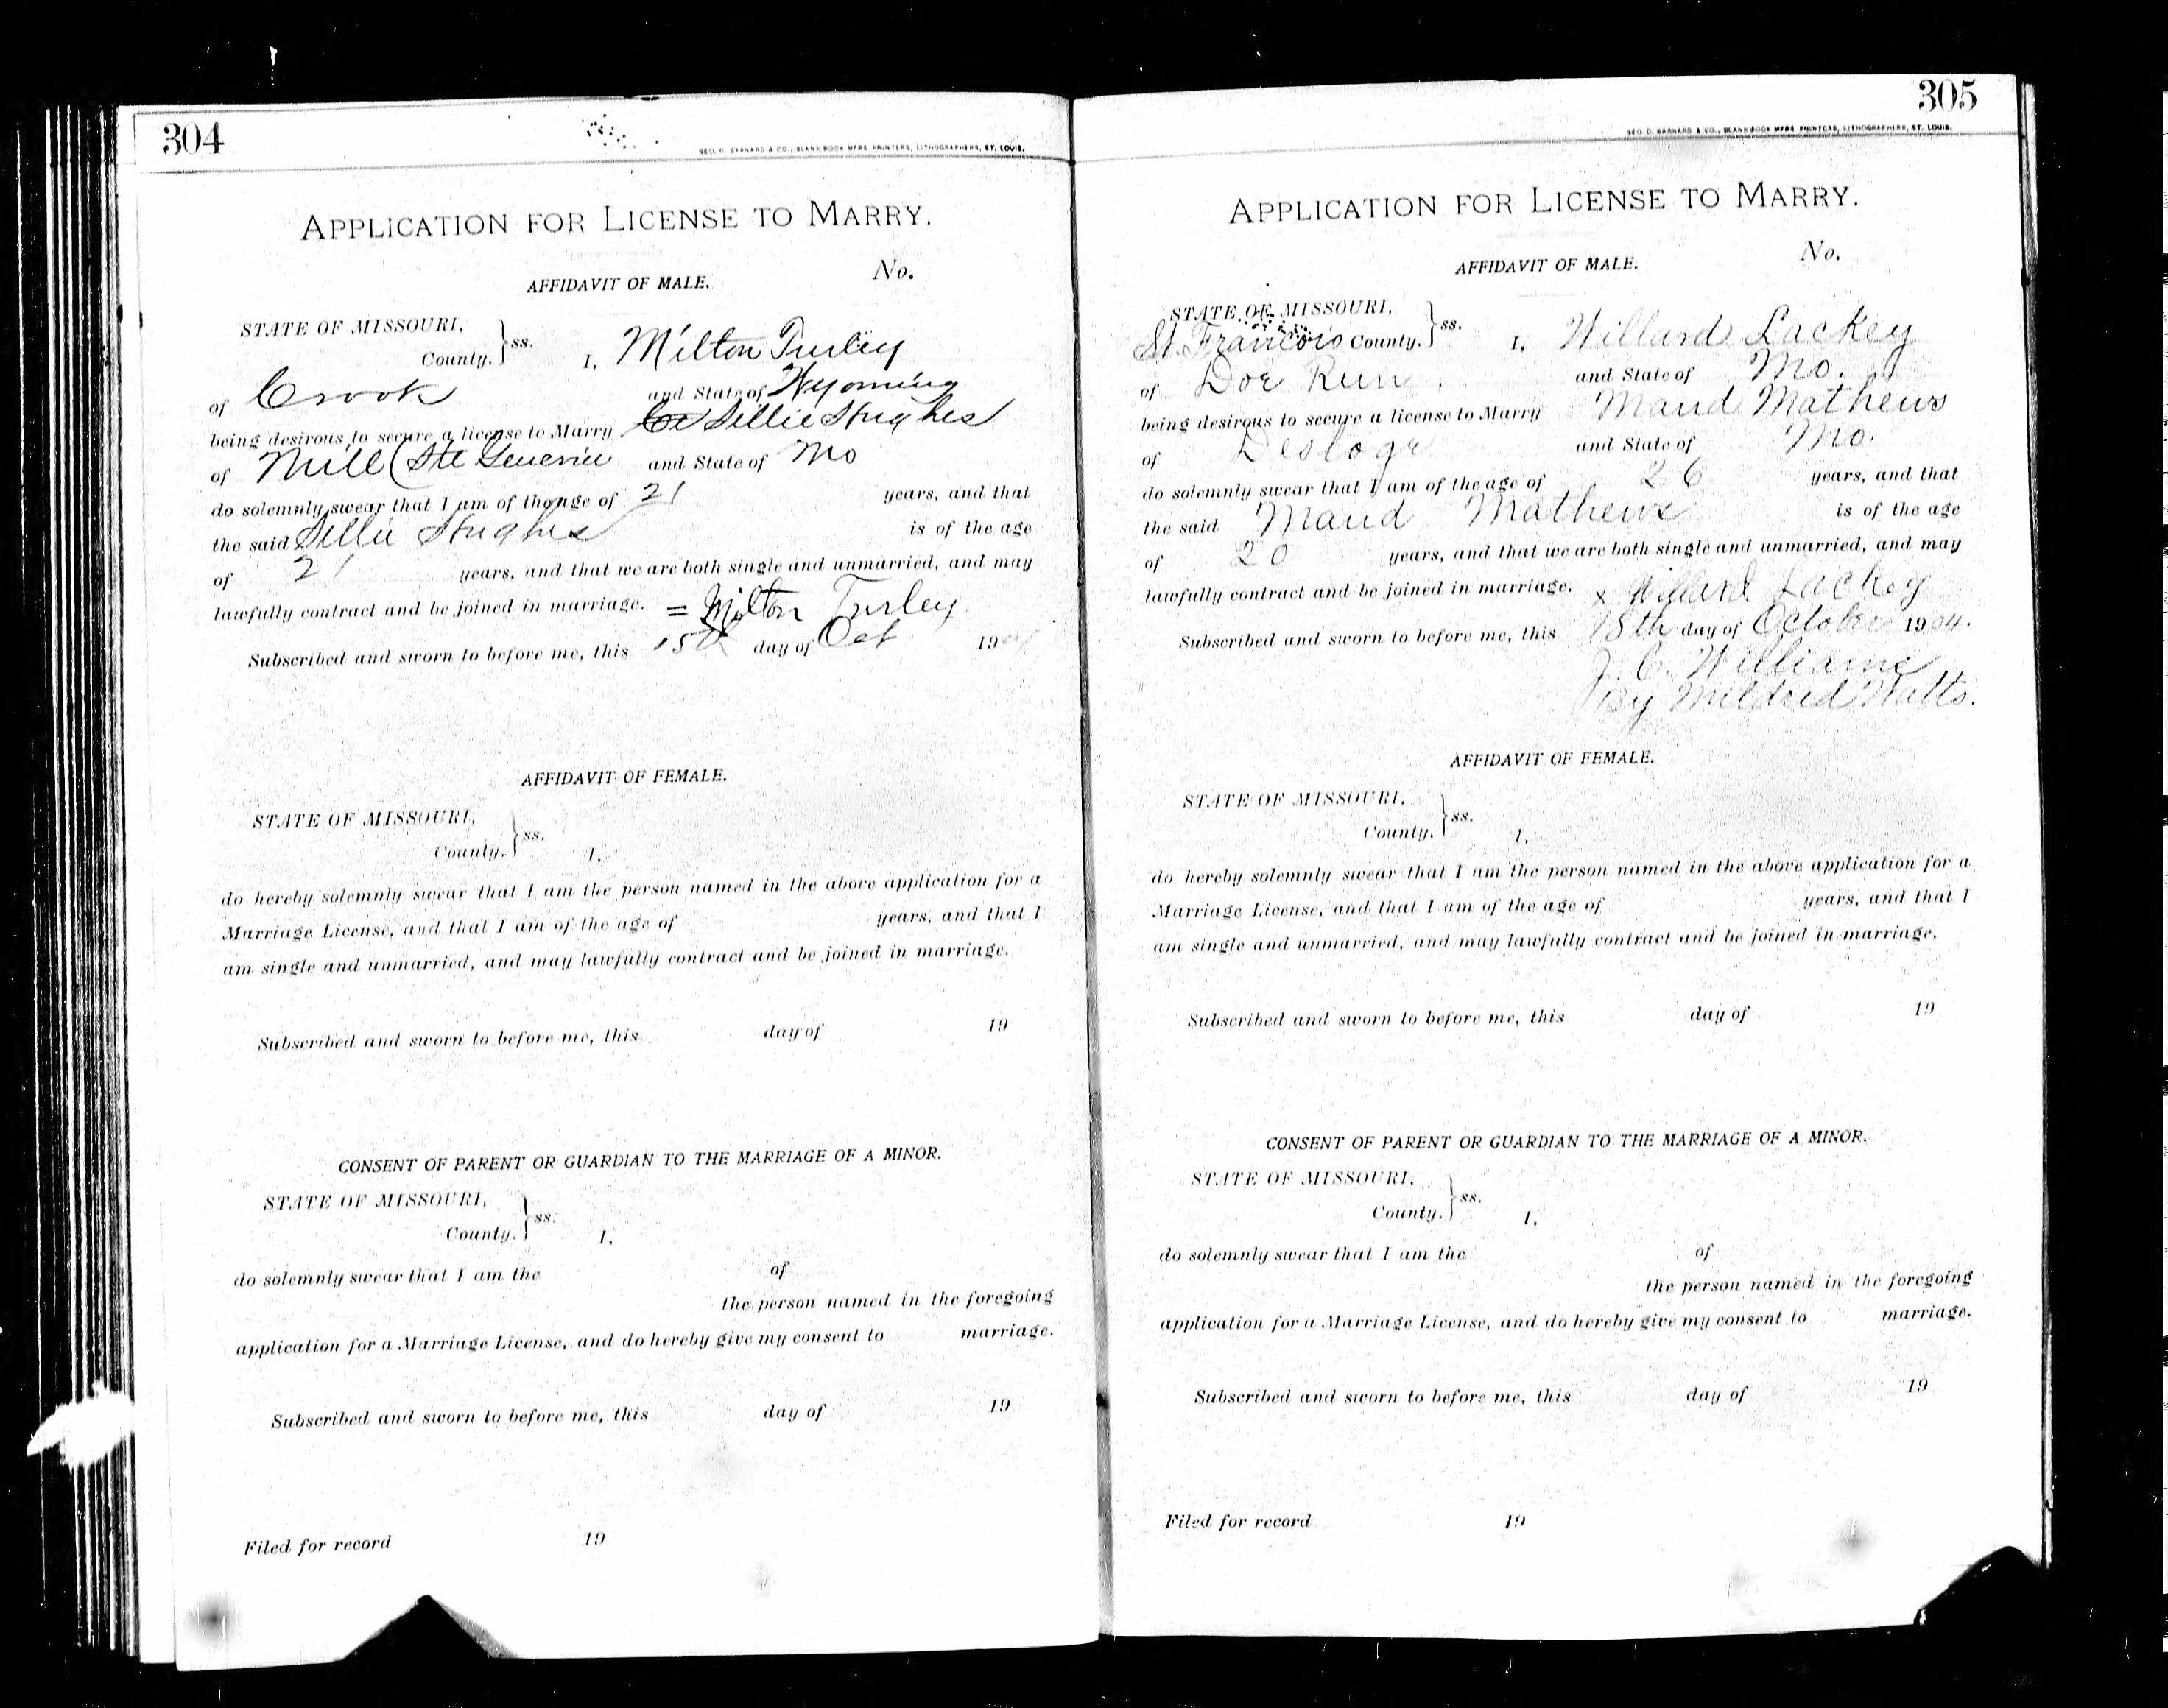 304
GEO. D. BARNARD & CO., BLANK BOOK MFRS PRINTERS, LITHOGRAPHERS, ST. LOUIS.
APPLICATION FOR LICENSE TO MARRY.
AFFIDAVIT OF MALE. No.
STATE OF MISSOURI,
County. ss. I, Milton Turley
of Crook and State of Wyoming
being desirous to secure a license to Marry Lillie Hughes
of Mill (Ste Genevieve and State of Mo
do solemnly swear that I am of the age of 21 years, and that
the said Lillie Hughes is of the age
of 21 years, and that we are both single and unmarried, and may
lawfully contract and be joined in marriage. = Milton Turley.
Subscribed and sworn to before me, this 15th day of Oct 1904
AFFIDAVIT OF FEMALE.
STATE OF MISSOURI,
County. ss. I,
do hereby solemnly swear that I am the person named in the above application for a
Marriage License, and that I am of the age of years, and that I
am single and unmarried, and may lawfully contract and be joined in marriage.
Subscribed and sworn to before me, this day of 19
CONSENT OF PARENT OR GUARDIAN TO THE MARRIAGE OF A MINOR.
STATE OF MISSOURI,
County. ss. I,
do solemnly swear that I am the of
the person named in the foregoing
application for a Marriage License, and do hereby give my consent to marriage.
Subscribed and sworn to before me, this day of 19
Filed for record 19
305
GEO. D. BARNARD & CO., BLANK BOOK MFRS PRINTERS, LITHOGRAPHERS, ST. LOUIS.
APPLICATION FOR LICENSE TO MARRY.
AFFIDAVIT OF MALE. No.
STATE OF MISSOURI,
St. Francois County. ss. I, Willard Lackey
of Doe Run, and State of Mo.
being desirous to secure a license to Marry Maud Mathews
of Desloge and State of Mo.
do solemnly swear that I am of the age of 26 years, and that
the said Maud Mathews is of the age
of 20 years, and that we are both single and unmarried, and may
lawfully contract and be joined in marriage. x Willard Lackey
Subscribed and sworn to before me, this 18th day of October 1904.
J. C. Williams
By Mildred Watts.
AFFIDAVIT OF FEMALE.
STATE OF MISSOURI,
County. ss. I,
do hereby solemnly swear that I am the person named in the above application for a
Marriage License, and that I am of the age of years, and that I
am single and unmarried, and may lawfully contract and be joined in marriage.
Subscribed and sworn to before me, this day of 19
CONSENT OF PARENT OR GUARDIAN TO THE MARRIAGE OF A MINOR.
STATE OF MISSOURI,
County. ss. I,
do solemnly swear that I am the of
the person named in the foregoing
application for a Marriage License, and do hereby give my consent to marriage.
Subscribed and sworn to before me, this day of 19
Filed for record 19